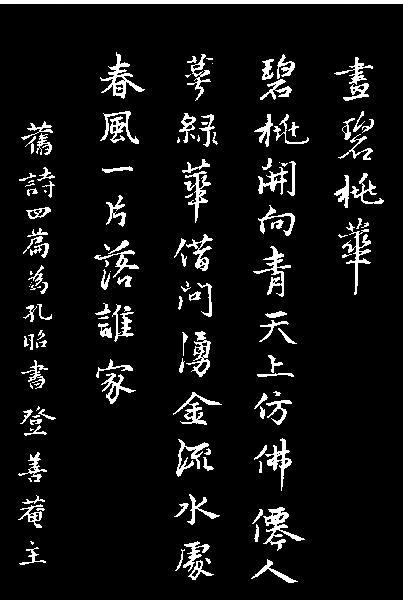 畫碧桃華
碧桃開向青天上仿佛僊人
萼綠華借問湧金流水處
春風一片落誰家
舊詩四篇為孔昭書登善菴主